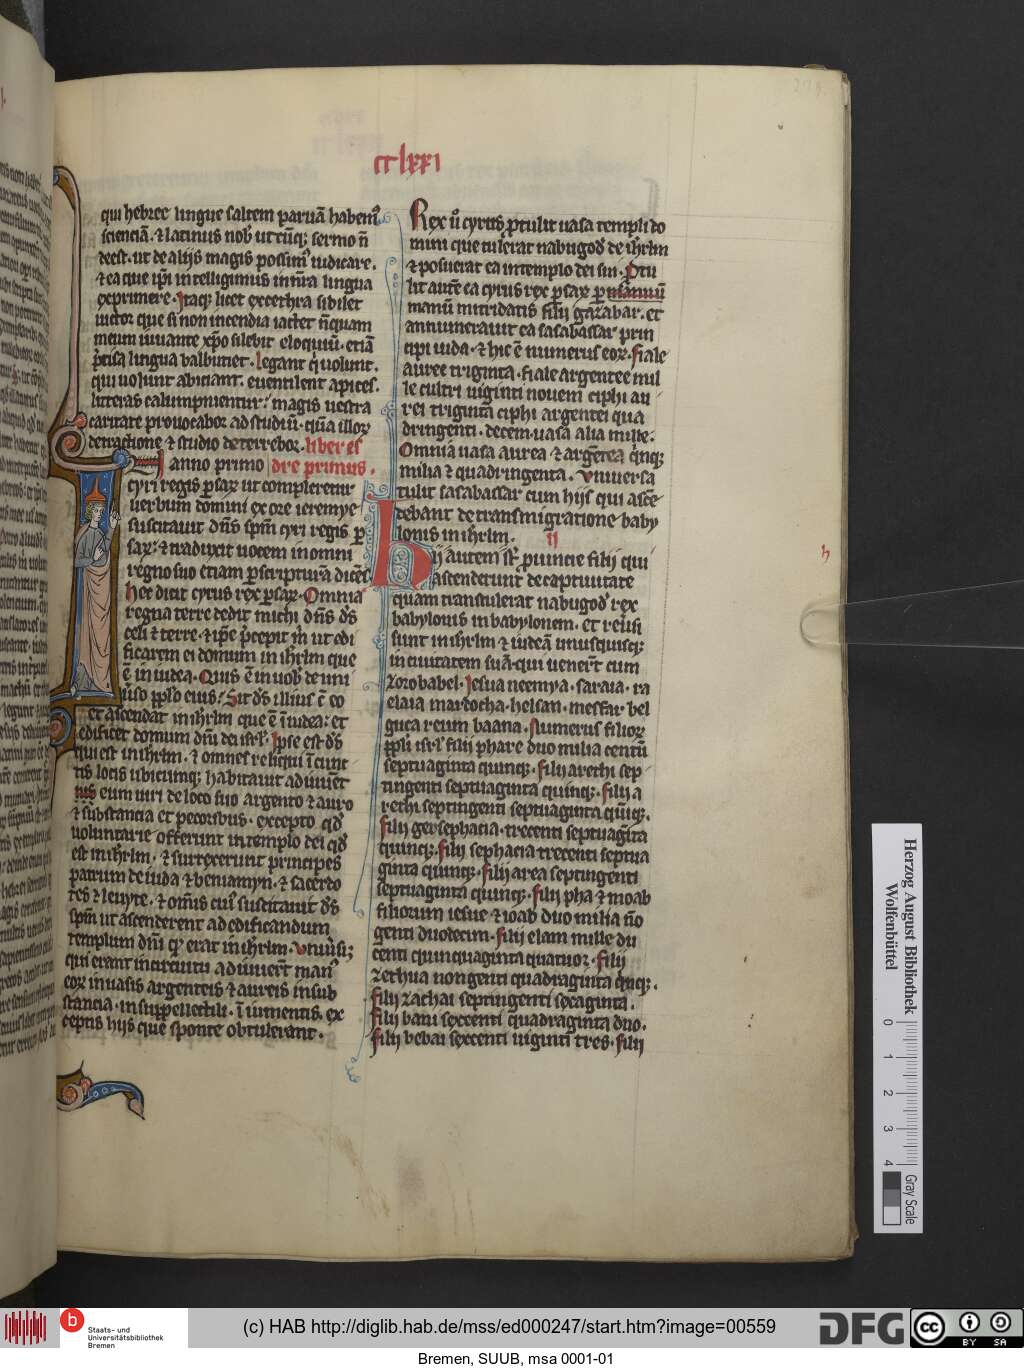 cclxxi
qui hebree lingue saltem paruā habemꝰ
scienciā. ⁊ latinus nob̄ utcūq; sermo n̄
deest. ut de alijs magis possimꝰ iudicare.
⁊ ea que ip̄i intelligimus in nr̄a lingua
exprimere. Itaq; licet excethra sibilet
uictor que si non incendia iactet nūquam
meum iuuante xp̄o silebit eloquiū. etiā
p̄cisa lingua balbutiet. legant q̇ uolunt.
qui uolunt abiciant. euentilent apices.
litteras calumpnientur: magis uestra
caritate prouocabor ad studiū. quā illoꝝ
detractione ⁊ studio deterrebor. liber es
anno primo dre primus.
cyri regis ꝑsaꝝ ut compleretur
uerbum domini ex ore ieremye
suscitauit dn̄s sp̄m cyri regis ꝑ
saꝝ: ⁊ traduxit uocem in omni
regno suo etiam ꝑ scripturā dicēs
Hec dicit cyrus rex ꝑsaꝝ. Omnia
regna terre dedit michi dn̄s ds̄
celi ⁊ terre. ⁊ ip̄e p̄cepit m̄ ut edi
ficarem ei domum in ihrl̄m que
ē in iudea. Quis ē in uob̄ de uni
uiso pplo eius? Sit ds̄ illius c̄ eo
et ascendat in ihrl̄m que ē ī iudea: et
edificet domum dn̄i dei isrl̄. Ipse est ds̄
qui est in ihrl̄m. ⁊ omnes reliqui ī cunc
tis locis ubicumq; habitant adiuuēt
ius eum uiri de loco suo argento ⁊ auro
⁊ substancia et pecoribus. excepto qd̄
uoluntarie offerunt in templo dei qd̄
est in ihrl̄m. ⁊ surrexerunt principes
patrum de iuda ⁊ beniamyn. ⁊ sacerdo
tes ⁊ leuyte. ⁊ om̄is cuiꝰ suscitauit ds̄
sp̄m ut ascenderent ad edificandum
templum dn̄i qd̄ erat in ihrl̄m. Vniūsi;
qui erant in circuitu adiuuer̄t manꝰ
eoꝝ in uasis argenteis ⁊ aureis in sub
stancia. in suppellectili. ī iumentis. ex
ceptis hijs que sponte obtulerant.
Rex ū cyrus ꝓtulit uasa templi do
mini que tulerat nabugod̄ de ihrl̄m
⁊ posuerat ea in templo dei sui. Ꝓtu
lit autē ea cyrus rex ꝑsaꝝ ꝑ mannū
manū mitridatis filij gazabar. et
annumerauit ea sasabassar prin
cipi iuda. ⁊ hic ē numerus eoꝝ. fiale
auree triginta. fiale argentee mil
le cultri uiginti nouem ciphi au
rei triginta ciphi argentei qua
dringenti. decem. uasa alia mille.
Omnia uasa aurea ⁊ argētea q̇nq;
milia ⁊ quadringenta. Vniuersa
tulit sasabassar cum hijs qui ascē
debant de transmigratione baby
lonis in ihrl̄m. II
Hij autem sr̄ ꝓuincie filij qui
ascenderunt de captiuitate
quam transtulerat nabugod̄ rex
babylonis in babylonem. et reūsi
sunt in ihrl̄m ⁊ iudeā unusquisq;
in ciuitatem suā. qui uenerūt cum
zorobabel. Iesua neemya. saraia. ra
elaia mardocha. belsan. mesfar bel
guca reum baana. Numerus filioꝝ
ppli isrl̄ filij phare duo milia centū
septuaginta quinq;. filij arethi sep
tingenti septuaginta quinq;. filij a
rethi septingenti septuaginta qūnq;.
filij geosephacia. trecenti septuagīta
quinq;. filij sephacia trecenti septua
ginta quinq;. filij area septingenti
septuaginta quinq;. filij pha ⁊ moab
filiorum iesue ⁊ ioab duo milia n̄o
genti duodecim. filij elam mille du
centi quinquaginta quatuoꝝ. filij
zethua nongenti quadraginta q̇nq;.
filij zachai septingenti sexaginta.
filij bani sexcenti quadraginta duo.
filij bebai sexcenti uiginti tres. filij
h
Herzog August Bibliothek
Wolfenbüttel
0 1 2 3 4
Gray Scale
b
Staats- und
Universitätsbibliothek
Bremen
(c) HAB http://diglib.hab.de/mss/ed000247/start.htm?image=00559
DFG
cc BY SA
Bremen, SUUB, msa 0001-01